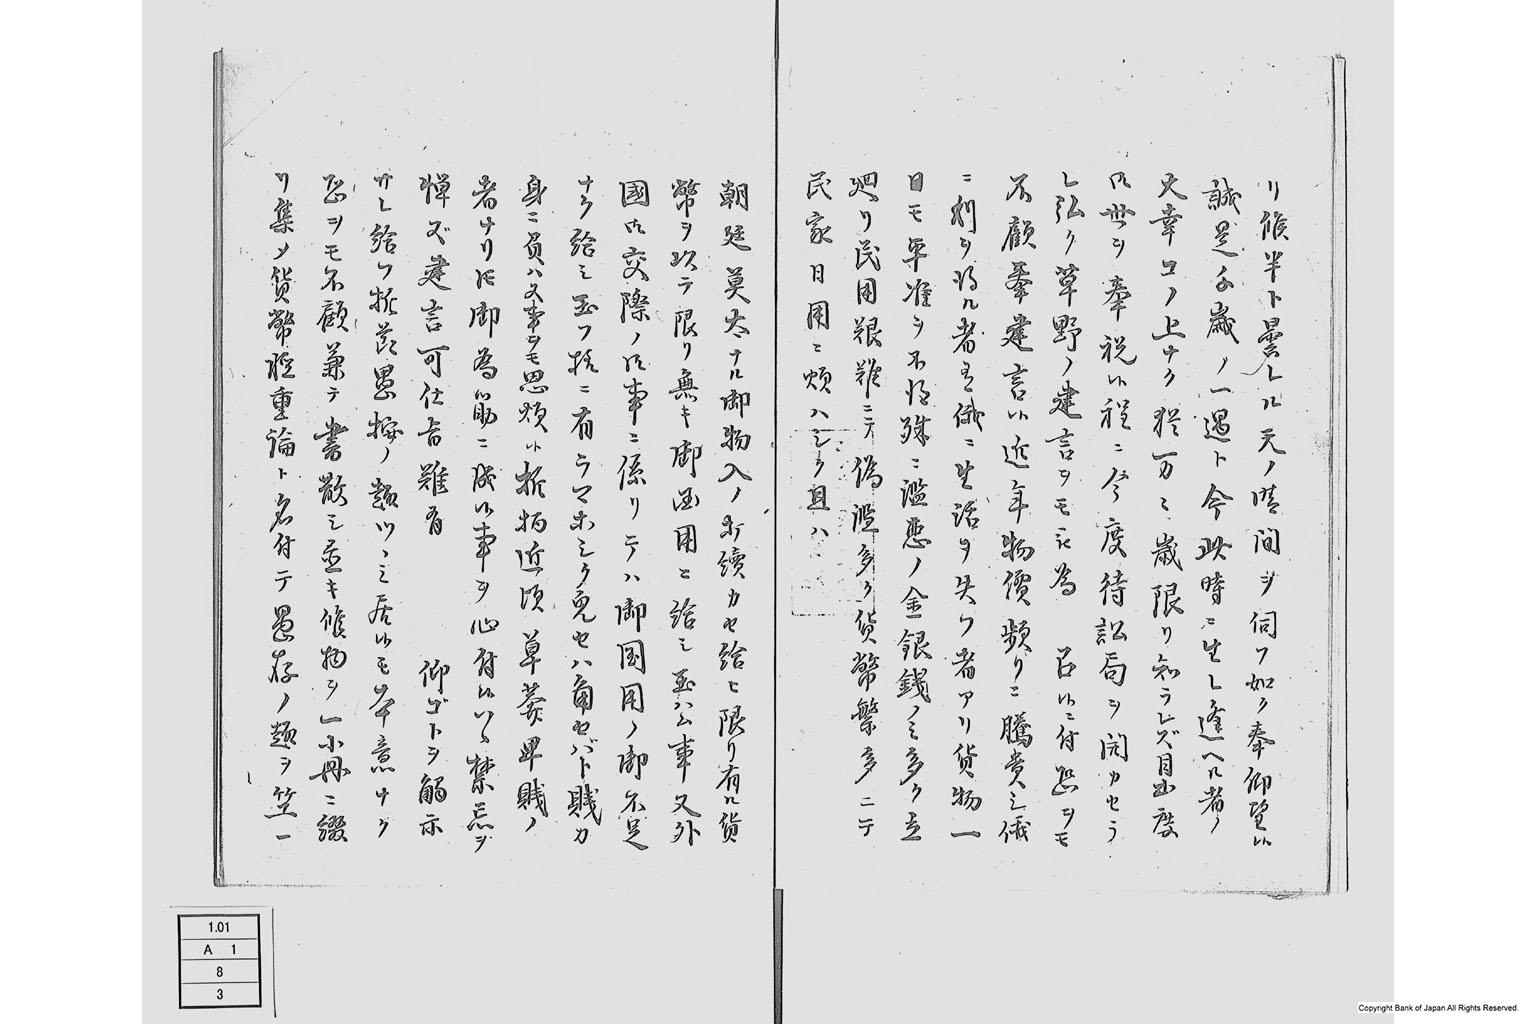 リ候半ト曇レル天ノ晴間ヲ伺フ如ク奉仰望候
誠是千歳ノ一遇ト今此時ニ生レ逢ヘル者ノ
大幸コノ上ナク猶万々歳限リ知ラレズ目出度
御世ヲ奉祝候程ニ今度待訟局ヲ開カセラ
レ弘ク草野ノ建言ヲモ 為 召候ニ付恐ヲモ
不顧奉建言候近年物價頻リニ騰貴シ俄
ニ利ヲ得ル者有俄ニ生活ヲ失フ者アリ貨物一
日モ平準ヲ不得殊ニ濫悪ノ金銀錢ノミ多ク立
廻リ民用艱難ニテ偽濫多ク貨幣繁多ニテ
民家日用ニ煩ハシク且ハ
朝廷莫大ナル御物入ノ打續カセ給ヒ限リ有ル貨
幣ヲ以テ限リ無キ御国用ニ給シ玉ハム事又外
國御交際ノ御事ニ係リテハ御国用ノ御不足
ナク給シ玉フ様ニ有ラマホシク兎セハ角セバト賤カ
身ニ負ハヌ事ヲモ思煩候折柄近頃草莽卑賤ノ
者ナリ共御為筋ニ成候事ヲ心付候ハヽ禁忌ヲ
憚ズ建言可仕旨難有 仰ゴトヲ觸示
サレ給フ折節愚按ノ趣ツヽミ居候モ本意ナク
恐ヲモ不顧兼テ書散シ置キ候物ヲ一小冊ニ綴
リ集メ貨幣軽重論ト名付テ愚存ノ趣ヲ笠一
1.01
A 1
8
3
Copyright Bank of Japan All Rights Reserved.